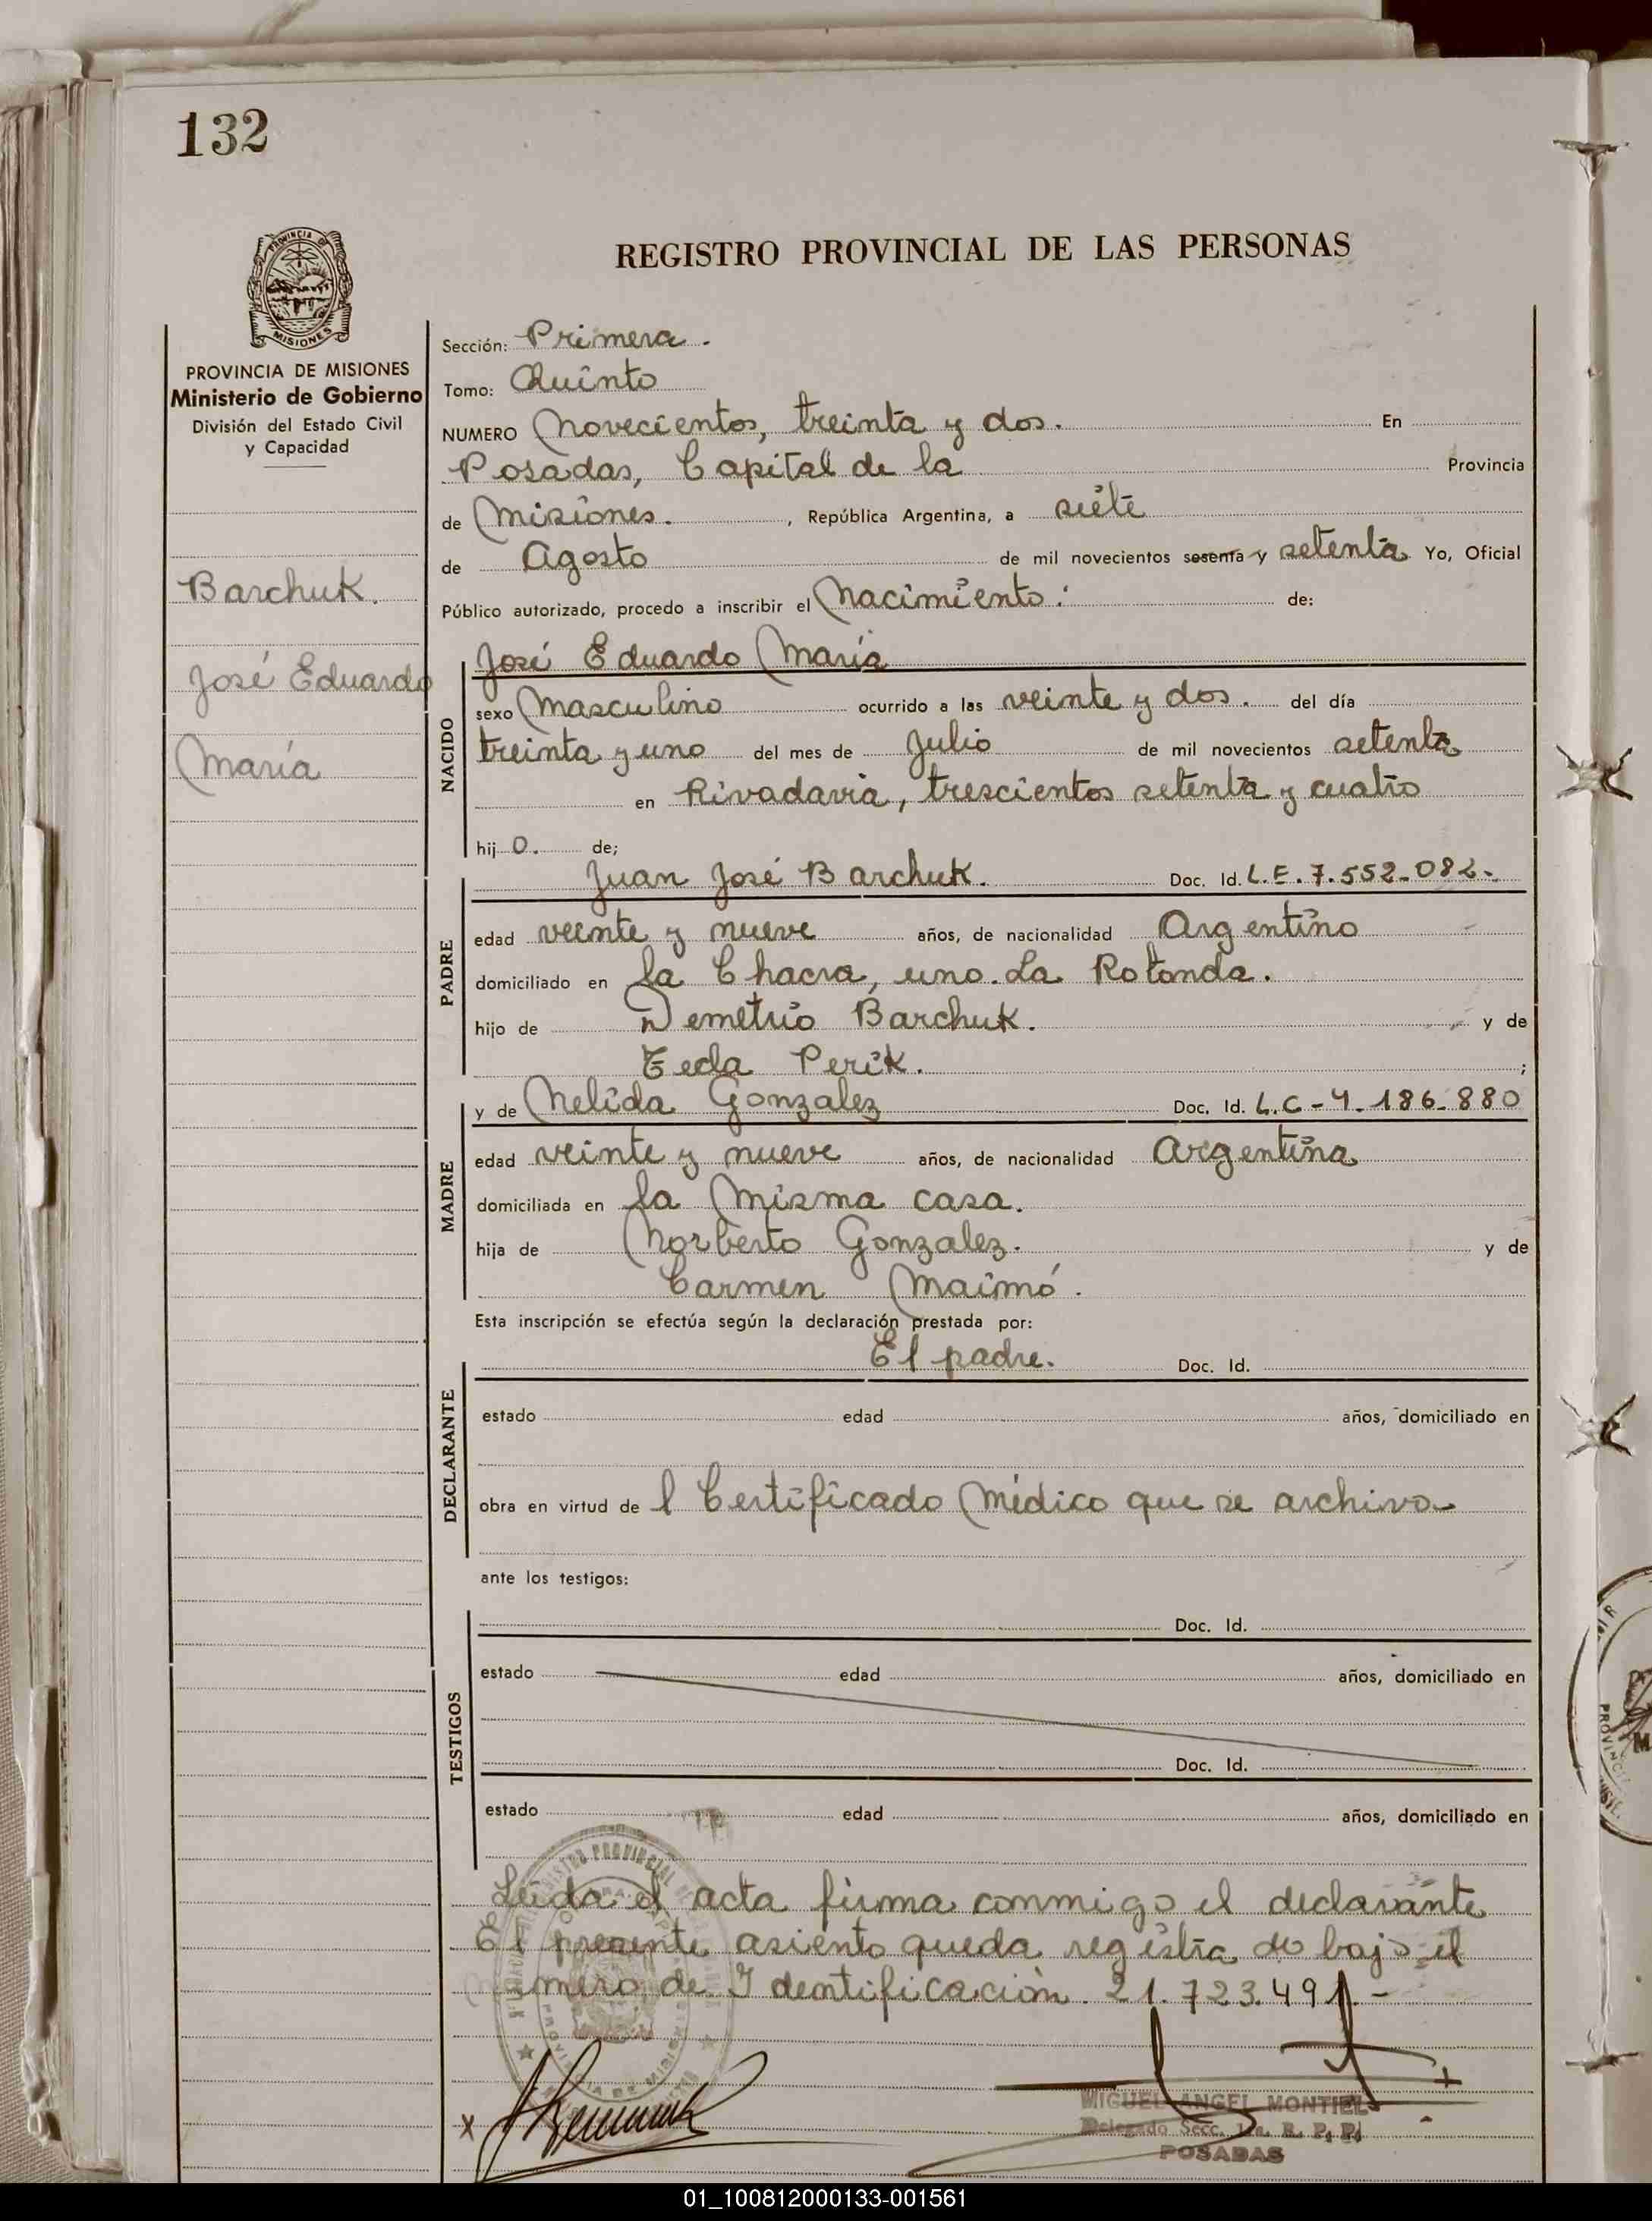 132
REGISTRO PROVINCIAL DE LAS PERSONAS
PROVINCIA DE
MISIONES
PROVINCIA DE MISIONES
Ministerio de Gobierno
División del Estado Civil
y Capacidad
Barchuk.
José Eduardo
María
Sección: Primera.
Tomo: Quinto
NUMERO Novecientos, treinta y dos. En
Posadas, Capital de la Provincia
de Misiones. , República Argentina, a siete
de Agosto de mil novecientos sesenta y setenta Yo, Oficial
Público autorizado, procedo a inscribir el Nacimiento: de:
NACIDO
José Eduardo María
sexo Masculino ocurrido a las veinte y dos. del día
treinta y uno del mes de Julio de mil novecientos setenta
en Rivadavia, trescientos setenta y cuatro
hij o. de;
PADRE
Juan José Barchuk. Doc. Id. L.E. 7.552-082-
edad veinte y nueve años, de nacionalidad Argentino
domiciliado en la Chacra, uno. La Rotonda.
hijo de Demetrio Barchuk. y de
Teda Perik. ;
MADRE
y de Nelida Gonzalez Doc. Id. L.C-4.186.880
edad veinte y nueve años, de nacionalidad Argentina
domiciliada en la Misma casa.
hija de Norberto Gonzalez. y de
Carmen Maimó.
Esta inscripción se efectúa según la declaración prestada por:
DECLARANTE
El padre. Doc. Id.
estado edad años, domiciliado en
obra en virtud de l Certificado Médico que se archiva
ante los testigos:
TESTIGOS
Doc. Id.
estado edad años, domiciliado en
Doc. Id.
estado edad años, domiciliado en
Leida el acta firma conmigo el declarante
El presente asiento queda registrado bajo el
numero de Identificación 21.723.491-
MIGUEL ANGEL MONTIEL
Delegado Secc. 1a. R. P. P.
POSADAS
01_100812000133-001561